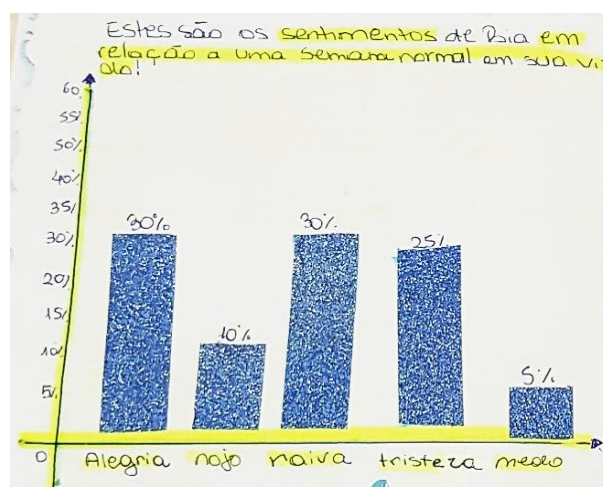 Estes são os sentimentos de Bia em
relação a uma semana normal em sua vi-
da!
60
55%
50%
40%
35%
30%
20%
15%
10%
5%
0
30%
10%
30%
25%
5%
Alegria nojo raiva tristeza medo